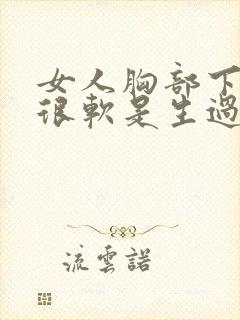 女人胸部下
很軟是生過
流雲諾